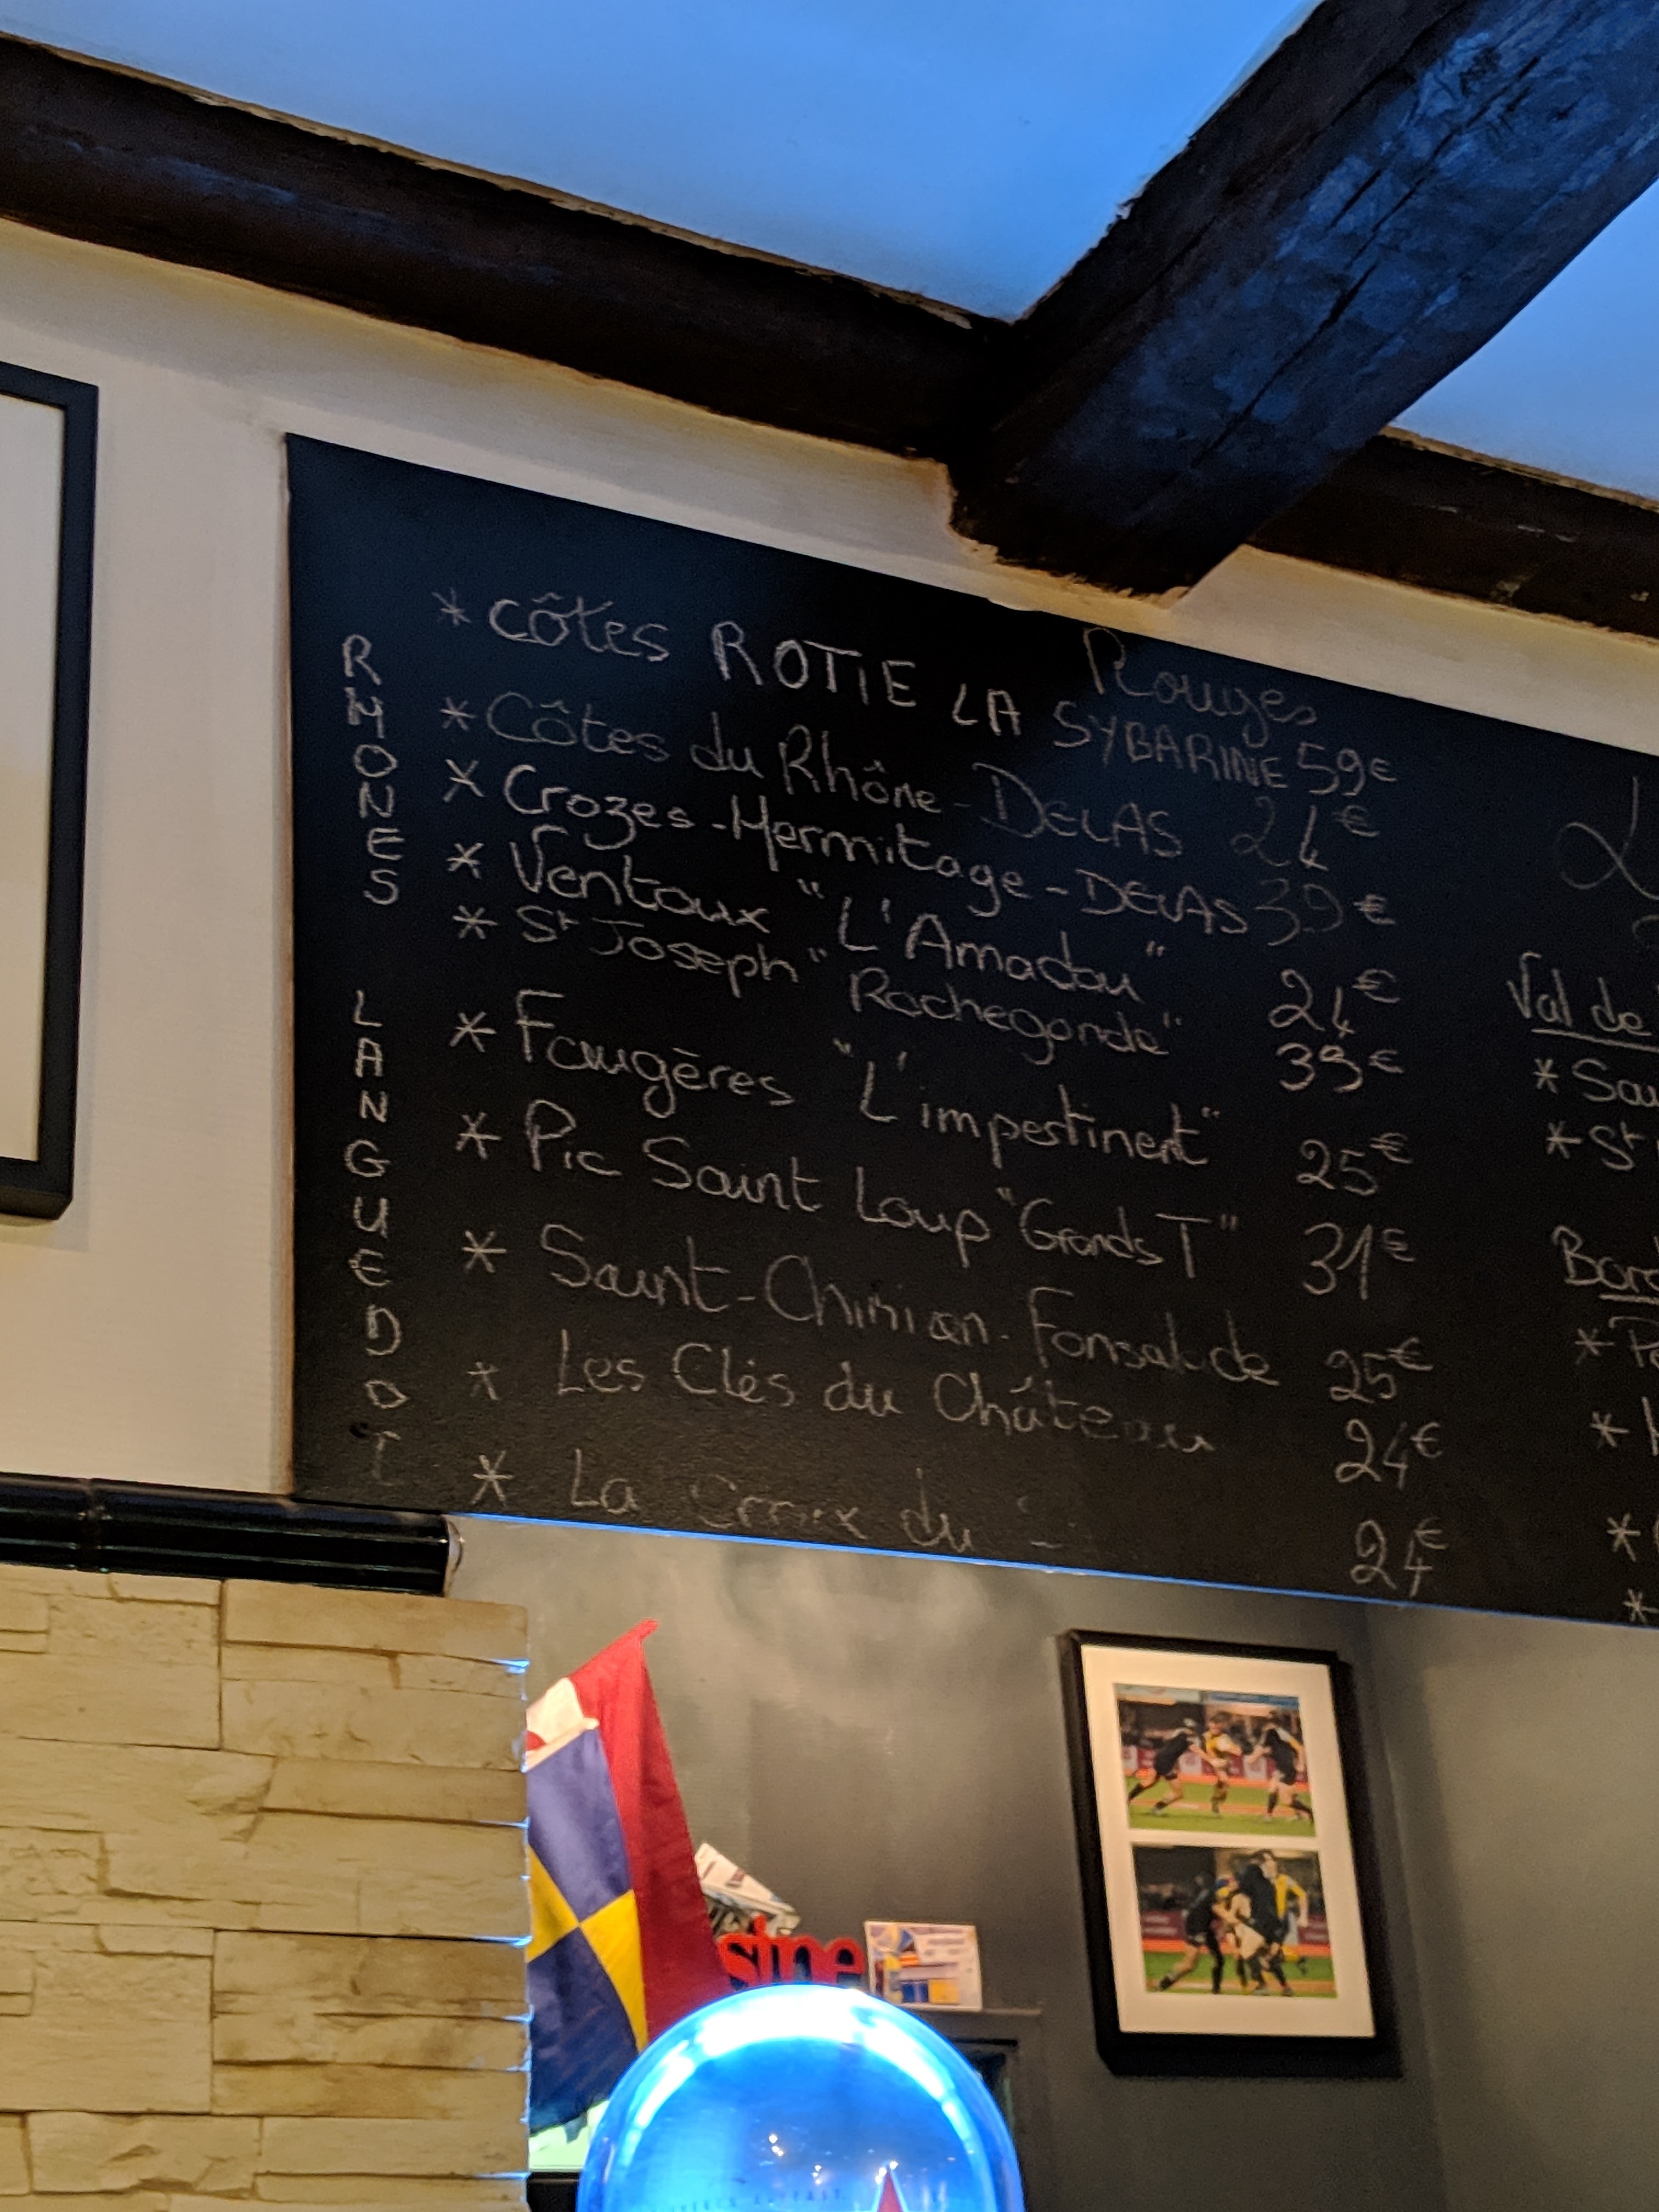 Rouges
* Côtes ROTIE LA SYBARINE 59€
* Côtes du Rhône - DELAS 24€
* Crozes-Hermitage - DELAS 39€
* Ventoux "L'Amadou" 24€
* St Joseph "Rochegonde" 39€
* Faugères "L'impertinent" 25€
* Pic Saint Loup "Grands T" 31€
* Saint-Chinian - Fonsalade 25€
* Les Clés du Château 24€
* La Croix du 24€
RHONES
LANGUEDOT
Val de
* Sau
* St
Bord
* Pe
*
*
*
sine